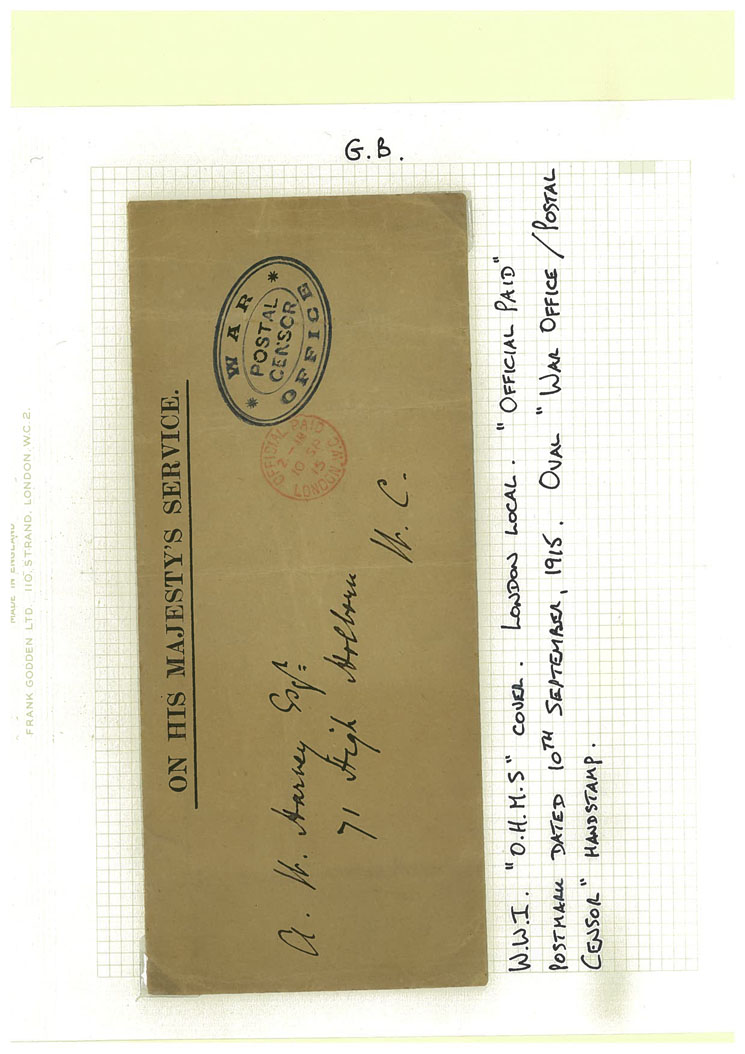 G.B.
ON HIS MAJESTY'S SERVICE.
WAR OFFICE
POSTAL
CENSOR
OFFICIAL PAID
2 - 18
10 SP
15
LONDON. W.C
A. W. Harvey Esqr
71 High Holborn
W. C.
W.W.I. "O.H.M.S" COVER. LONDON LOCAL. "OFFICIAL PAID"
POSTMARK DATED 10TH SEPTEMBER, 1915. OVAL "WAR OFFICE / POSTAL
CENSOR" HANDSTAMP.
MADE IN ENGLAND
FRANK GODDEN LTD. 110, STRAND, LONDON, W.C.2.